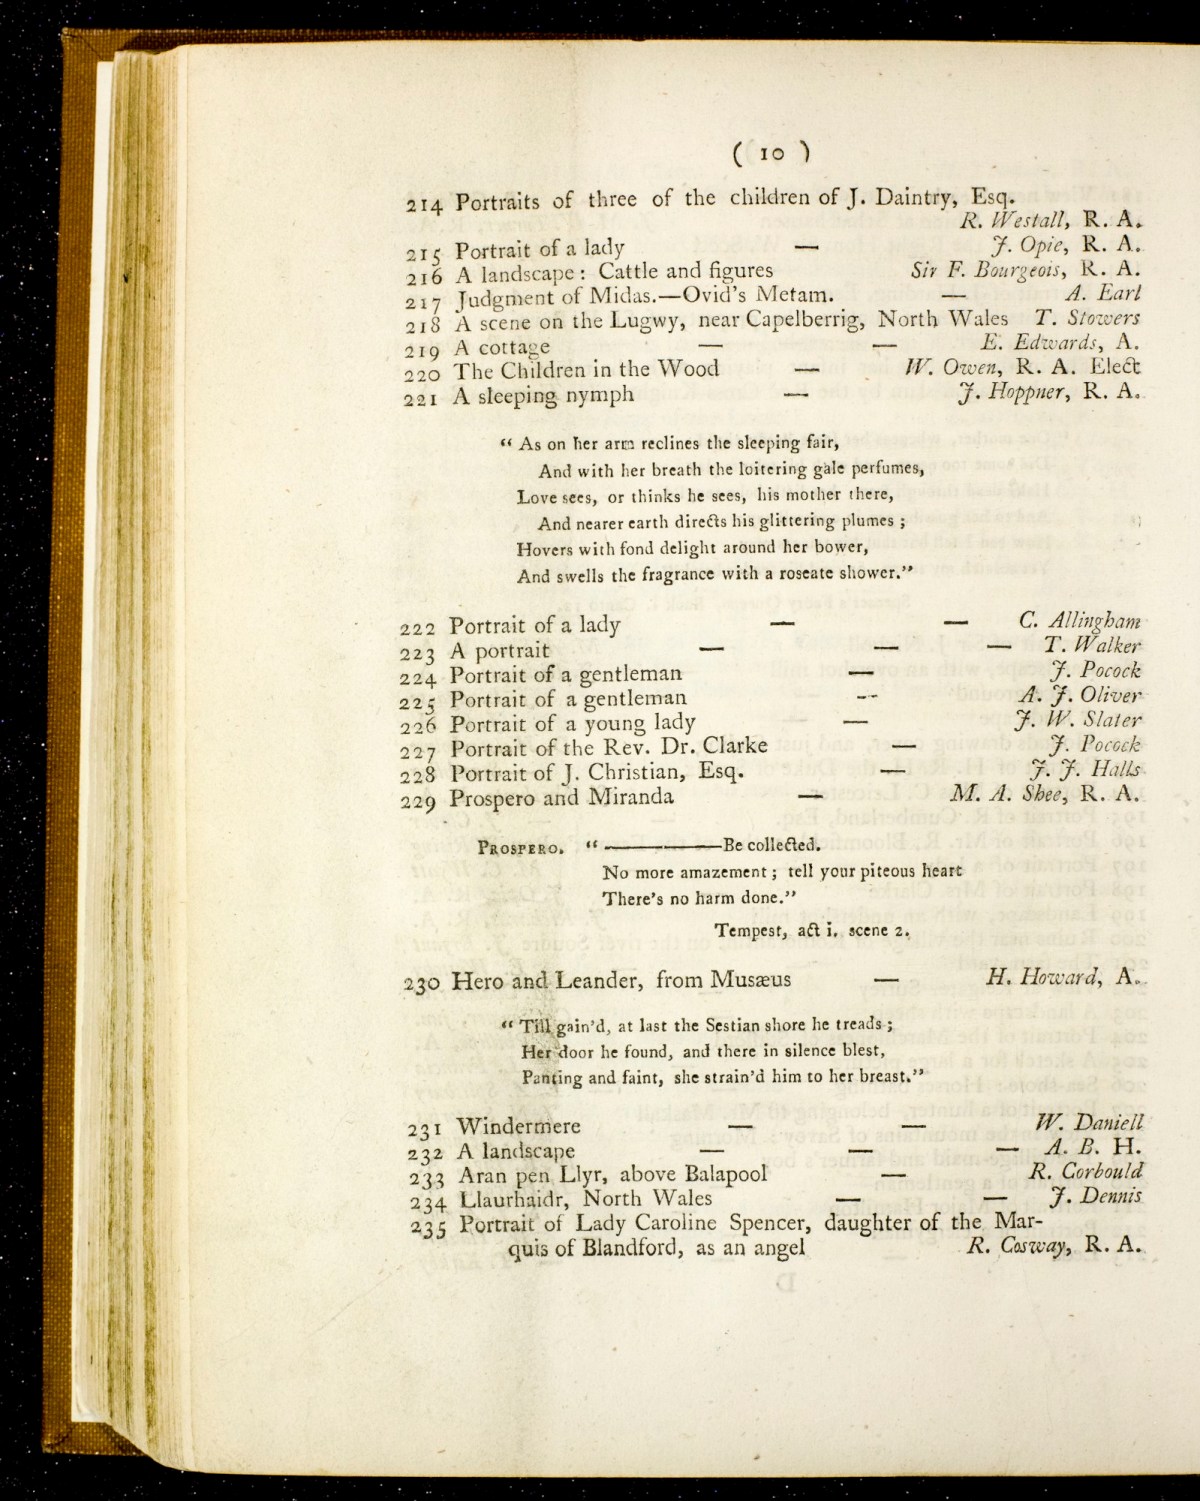 ( 10 )
214 Portraits of three of the children of J. Daintry, Esq.
R. Westall, R. A.
215 Portrait of a lady — J. Opie, R. A.
216 A landscape: Cattle and figures Sir F. Bourgeois, R. A.
217 Judgment of Midas.—Ovid's Metam. — A. Earl
218 A scene on the Lugwy, near Capelberrig, North Wales T. Stowers
219 A cottage — — E. Edwards, A.
220 The Children in the Wood — W. Owen, R. A. Elect
221 A sleeping nymph — J. Hoppner, R. A.
“ As on her arm reclines the sleeping fair,
And with her breath the loitering gale perfumes,
Love sees, or thinks he sees, his mother there,
And nearer earth directs his glittering plumes ;
Hovers with fond delight around her bower,
And swells the fragrance with a roseate shower.”
222 Portrait of a lady — — C. Allingham
223 A portrait — — — T. Walker
224 Portrait of a gentleman — J. Pocock
225 Portrait of a gentleman -- A. J. Oliver
226 Portrait of a young lady — J. W. Slater
227 Portrait of the Rev. Dr. Clarke — J. Pocock
228 Portrait of J. Christian, Esq. — J. J. Halls
229 Prospero and Miranda — M. A. Shee, R. A.
PROSPERO. “ ————Be collected.
No more amazement ; tell your piteous heart
There's no harm done.”
Tempest, act i. scene 2.
230 Hero and Leander, from Musæus — H. Howard, A.
“ Till gain'd, at last the Sestian shore he treads ;
Her door he found, and there in silence blest,
Panting and faint, she strain'd him to her breast.”
231 Windermere — — W. Daniell
232 A landscape — — — A. B. H.
233 Aran pen Llyr, above Balapool — R. Corbould
234 Llaurhaidr, North Wales — — J. Dennis
235 Portrait of Lady Caroline Spencer, daughter of the Mar-
quis of Blandford, as an angel R. Cosway, R. A.